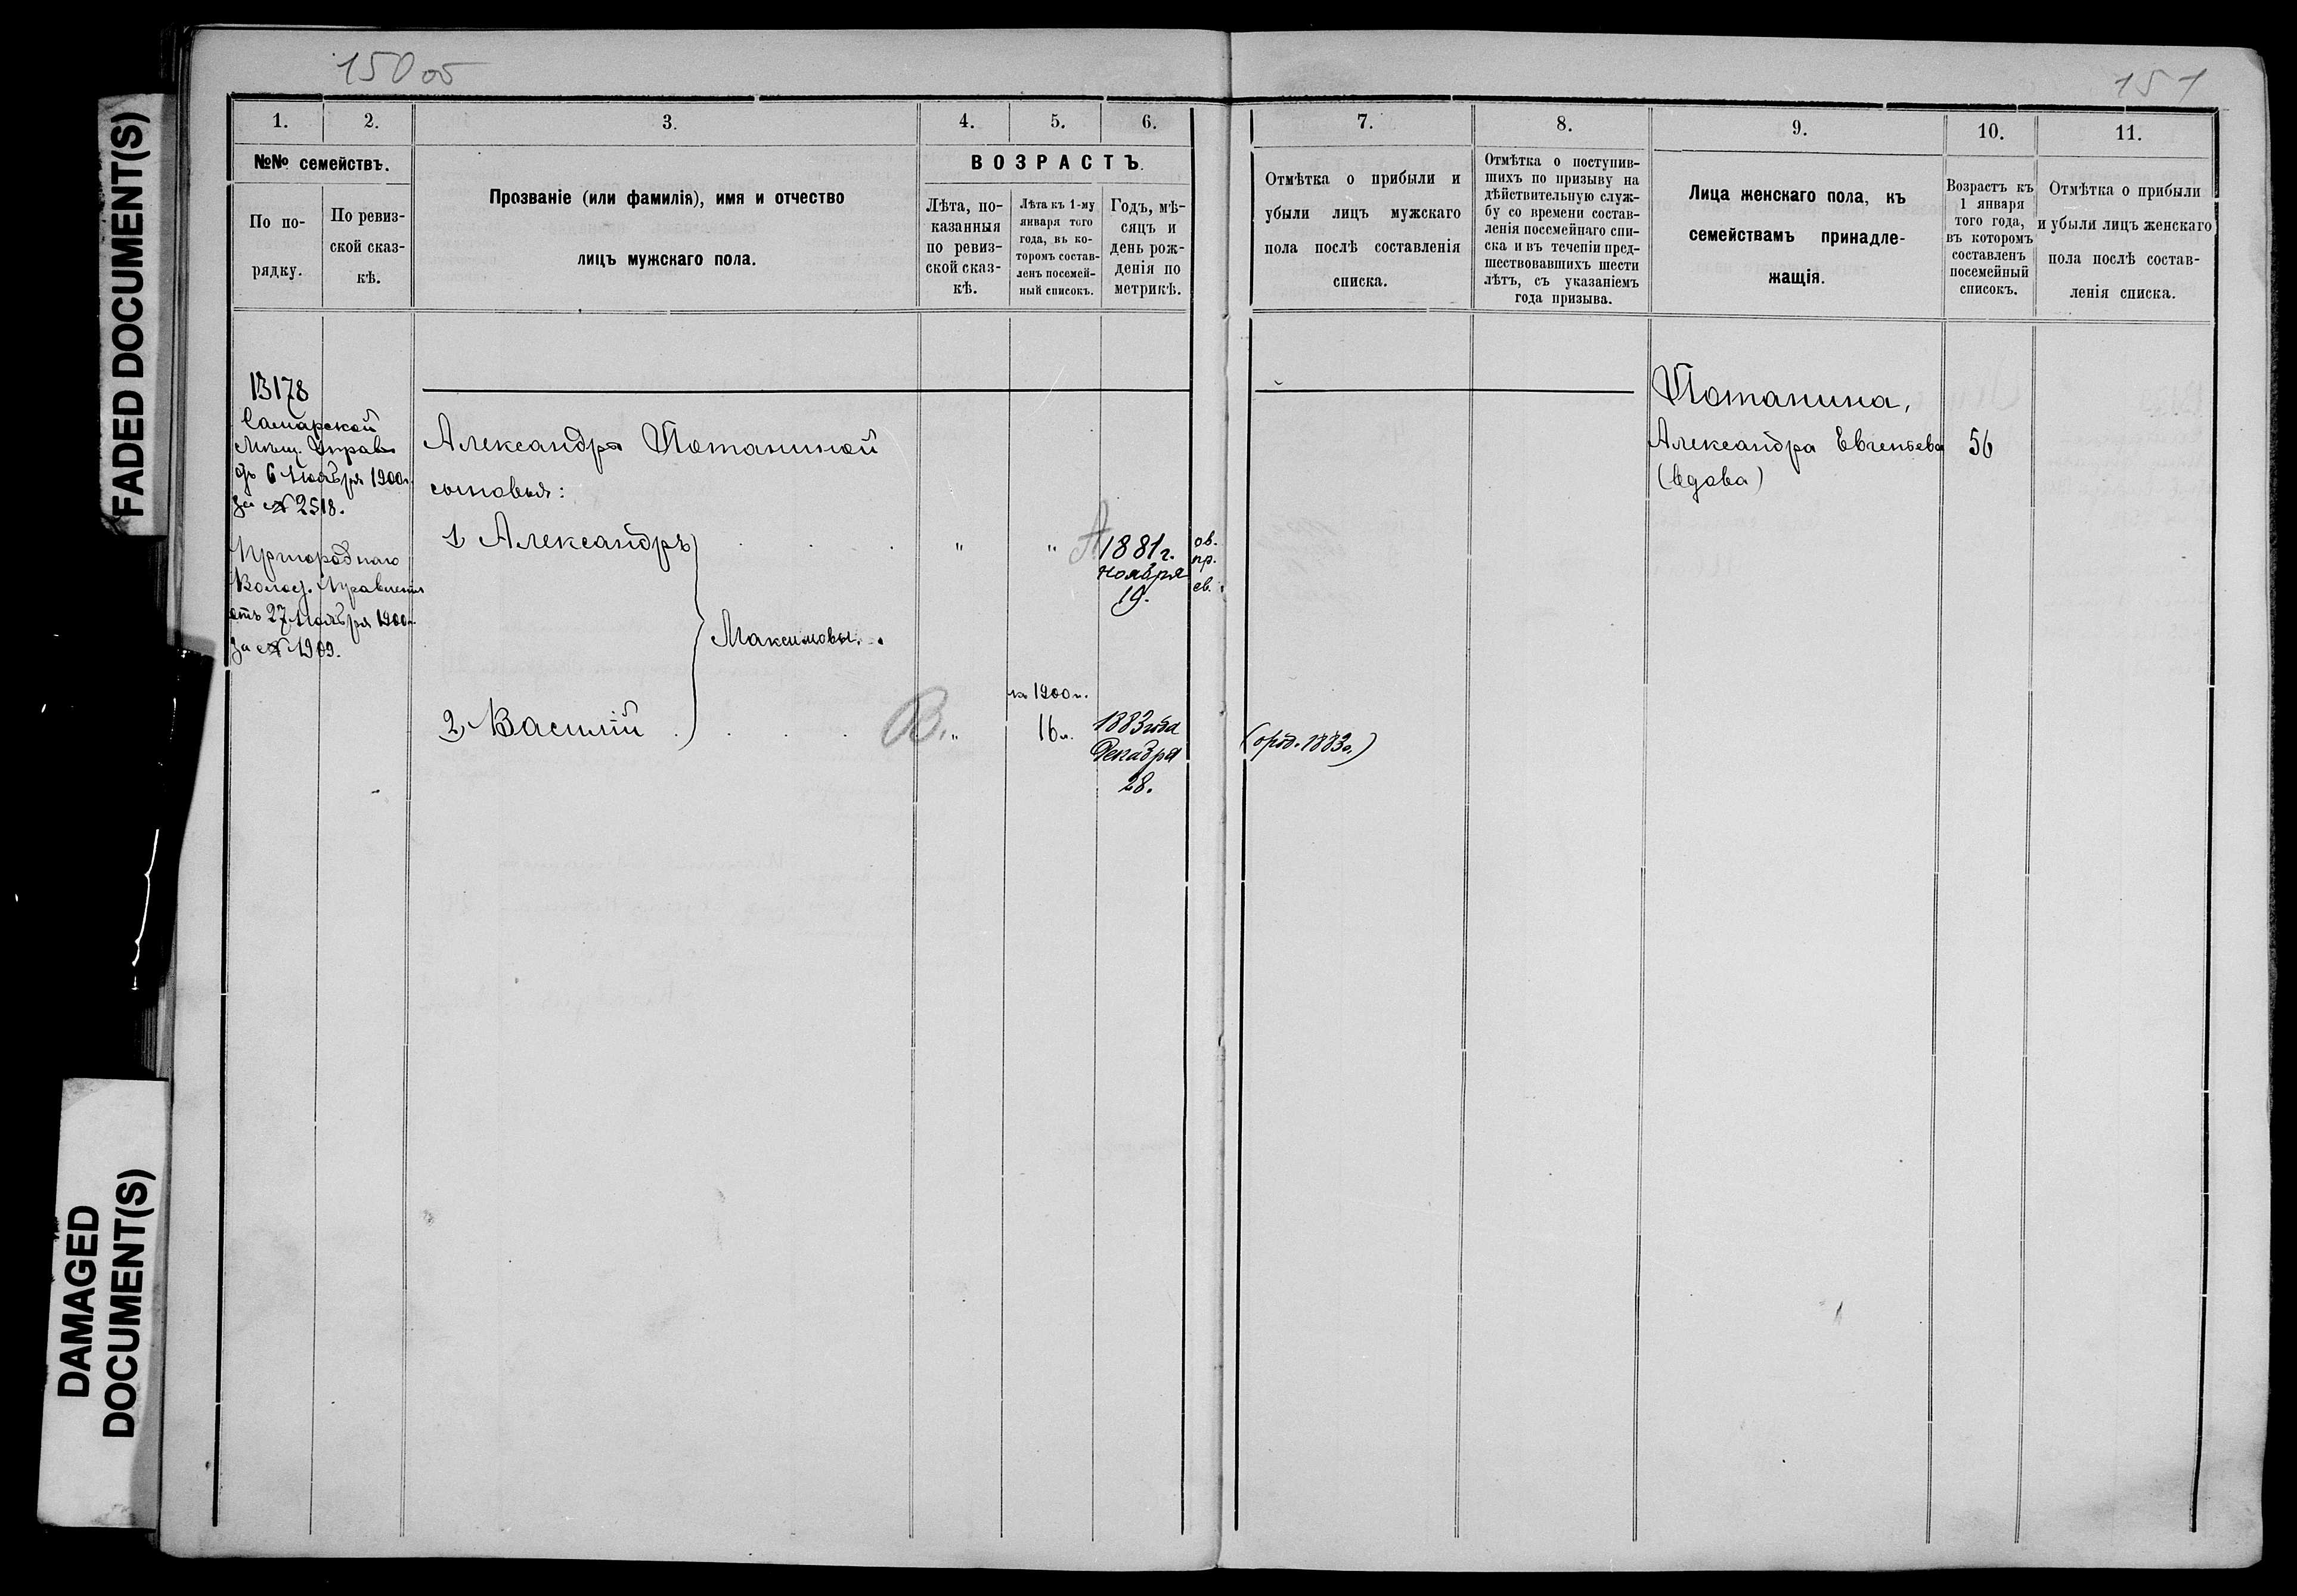 FADED DOCUMENT(S)
DAMAGED
DOCUMENT(S)
150 об
151
1.
2.
3.
4.
5.
6.
7.
8.
9.
10.
11.
№№ семействъ.
По по-
рядку.
По ревиз-
ской сказ-
кѣ.
Прозваніе (или фамилія), имя и отчество
лицъ мужскаго пола.
ВОЗРАСТЪ.
Лѣта, по-
казанныя
по ревиз-
ской сказ-
кѣ.
Лѣта къ 1-му
января того
года, въ ко-
торомъ состав-
ленъ посемей-
ный списокъ.
Годъ, мѣ-
сяцъ и
день рож-
денія по
метрикѣ.
Отмѣтка о прибыли и
убыли лицъ мужскаго
пола послѣ составленія
списка.
Отмѣтка о поступив-
шихъ по призыву на
дѣйствительную служ-
бу со времени состав-
ленія посемейнаго спи-
ска и въ теченіи пред-
шествовавшихъ шести
лѣтъ, съ указаніемъ
года призыва.
Лица женскаго пола, къ
семействамъ принадле-
жащія.
Возрастъ къ
1 января
того года,
въ которомъ
составленъ
посемейный
списокъ.
Отмѣтка о прибыли
и убыли лицъ женскаго
пола послѣ состав-
ленія списка.
13178
Самарской
Мѣщ. Управ
отъ 6 Ноября 1900г.
за № 2518.
Пригороднаго
Волост. Правленія
отъ 27 Ноября 1900г.
за № 1909.
Александры Потаниной
сыновья:
1, Александръ " " А 1881 г.
Ноября
19.
ов.
пр.
св.
Максимовы.
на 1900 г.
2, Василій В. " 16 л. 1883 года
Декабря
28.
(1883г.)
Потанина,
Александра Евгеньева 56
(вдова)